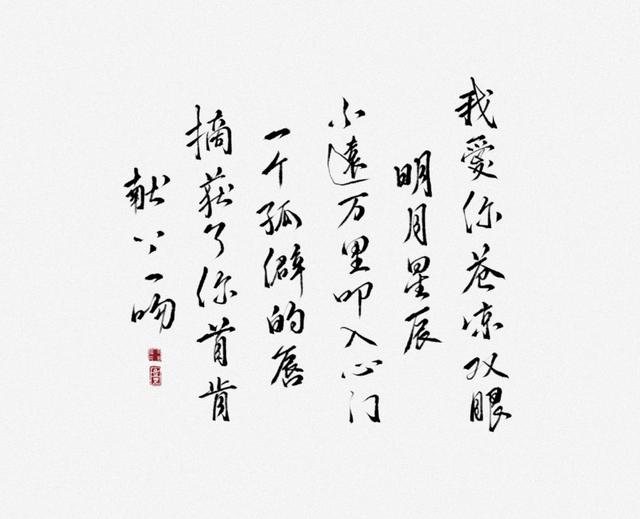 我愛你苍凉双眼
明月星辰
不遠万里叩入心门
一个孤僻的唇
摘获了你首肯
献上一吻